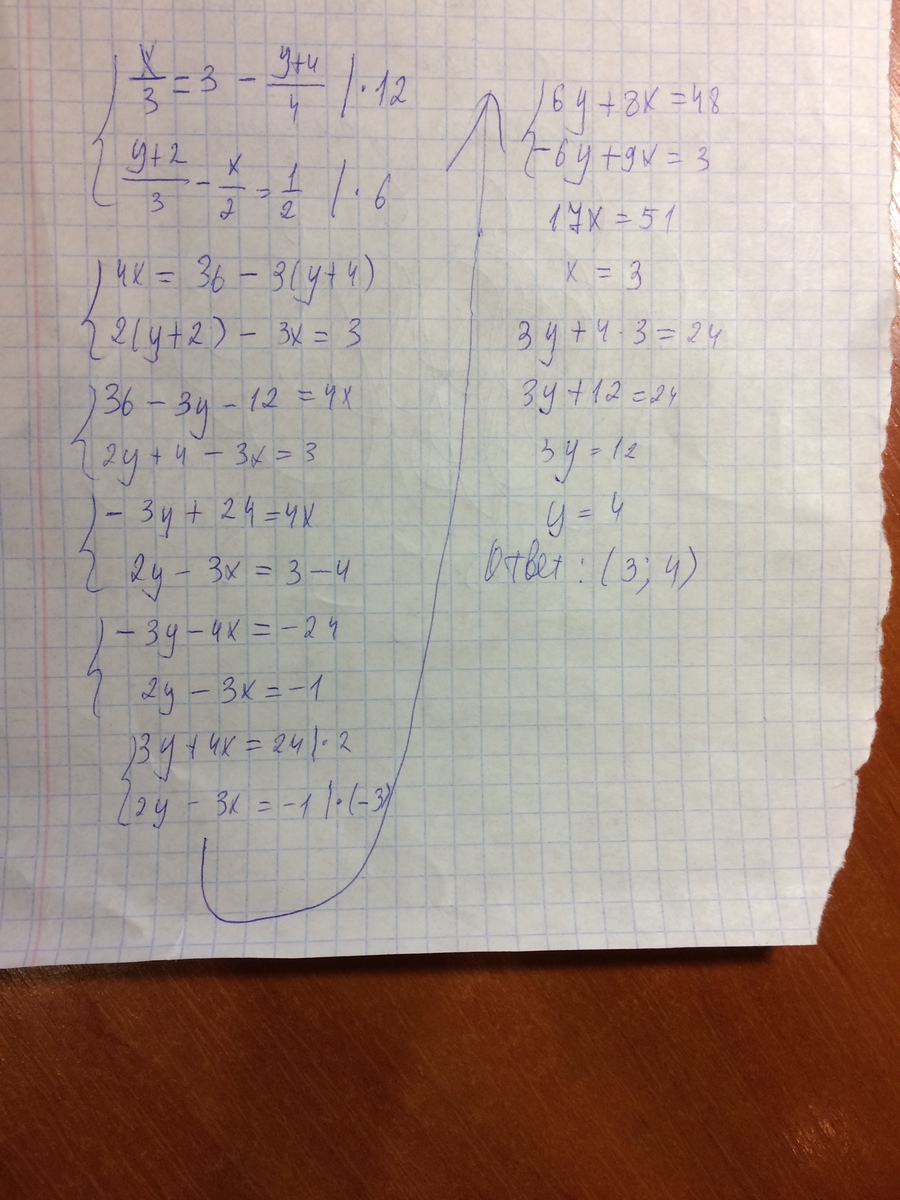 x/3 = 3 - y+4/4 | · 12
y+2/3 - x/2 = 1/2 | · 6
4x = 36 - 3(y+4)
2(y+2) - 3x = 3
36 - 3y - 12 = 4x
2y + 4 - 3x = 3
- 3y + 24 = 4x
2y - 3x = 3 - 4
- 3y - 4x = - 24
2y - 3x = - 1
3y + 4x = 24 | · 2
2y - 3x = - 1 | · (-3)
6y + 8x = 48
-6y + 9x = 3
17x = 51
x = 3
3y + 4 · 3 = 24
3y + 12 = 24
3y = 12
y = 4
Ответ: (3; 4)